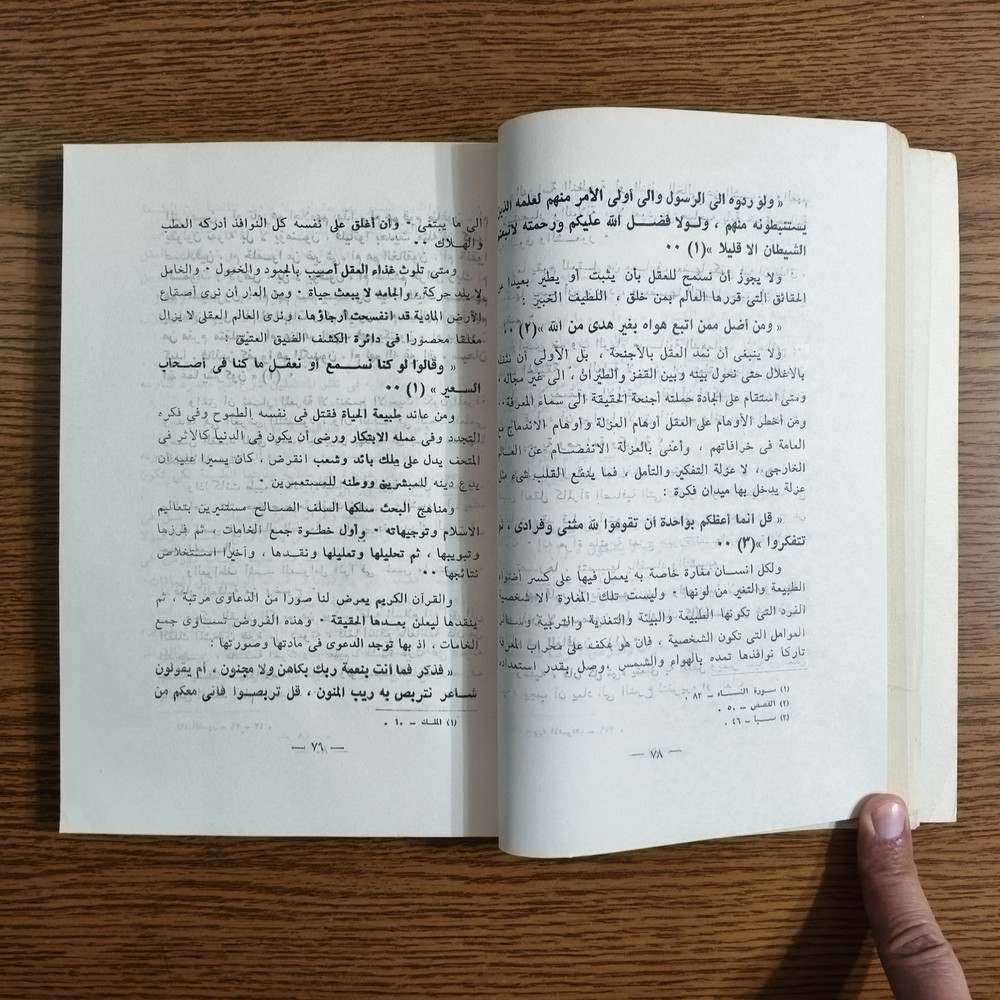 « ولو ردوه الى الرسول والى أولى الأمر منهم لعلمه الذين
يستنبطونه منهم ، ولولا فضل الله عليكم ورحمته لاتبعتم
الشيطان الا قليلا »(١) ٠٠
ولا يجوز أن نسمح للعقل بأن يثبت أو يطير بعيدا عن
الحقائق التى قررها العالم بمن خلق ، اللطيف الخبير :
« ومن أضل ممن اتبع هواه بغير هدى من الله »(٢) ٠٠
ولا ينبغى أن نمد العقل بالأجنحة ، بل الأولى أن
بالاغلال حتى نحول بينه وبين القفز والطيران ، الى غير مجاله ،
ومتى استقام على الجادة حملته أجنحة الحقيقة الى سماء المعرفة ٠٠
ومن أخطر الأوهام على العقل أوهام العزلة وأوهام الاندماج مع
العامة فى خرافاتهم ، وأعنى بالعزلة الانفصام عن العالم
الخارجى ، لا عزلة التفكير والتأمل ، فما ينفع القلب شىء مثل
عزلة يدخل بها ميدان فكرة :
« قل انما أعظكم بواحدة أن تقوموا لله مثنى وفرادى ، ثم
تتفكروا »(٣) ٠٠
ولكل انسان مغارة خاصة به يعمل فيها على كسر أضواء
الطبيعة والتغير من لونها ٠ وليست تلك المغارة الا شخصية
الفرد التى تكونها الطبيعة والبيئة والتغذية والتربية وسائر
العوامل التى تكون الشخصية ، فان هو عكف على محراب المعرفة
تاركا نوافذها تمده بالهواء والشمس ، وصل بقدر استعداده
(١) سورة النساء – ٨٣ ٠
(٢) القصص – ٥٠ ٠
(٣) سبأ – ٤٦ ٠
— ٧٨ —
الى ما يبتغى ٠ وأن أغلق على نفسه كل النوافذ أدركه العطب
والهلاك ٠٠
ومتى تلوث غذاء العقل أصيب بالجمود والخمول ٠ والخامل
لا يلد حركة ، والجامد لا يبعث حياة ٠ ومن العار أن نرى أصقاع
الأرض المادية قد انفسحت أرجاؤها ، ونرى العالم العقلى لا يزال
مغلقا محصورا فى دائرة الكشف الضيق العتيق
« وقالوا لو كنا نسمع أو نعقل ما كنا فى أصحاب
السعير » (١) ٠٠
ومن عاند طبيعة الحياة فقتل فى نفسه الطموح وفى فكره
التجدد وفى عمله الابتكار ورضى أن يكون فى الدنيا كالأثر فى
المتحف يدل على ملك بائد وشعب انقرض ، كان يسيرا عليه أن
يدع دينه للمبشرين ووطنه للمستعمرين ٠
ومناهج البحث سلكها السلف الصالح مستنيرين بتعاليم
الاسلام وتوجيهاته ٠ وأول خطوة جمع الخامات ، ثم فرزها
وتبويبها ، ثم تحليلها وتعليلها ونقدها ، وأخيرا استخلاص
نتائجها ٠٠
والقرآن الكريم يعرض لنا صورا من الدعاوى مرتبة ، ثم
ينقدها ليعلن بعدها الحقيقة ٠ وهذه الفروض تساوى جمع
الخامات ، اذ بها توجد الدعوى فى مادتها وصورتها :
« فذكر فما أنت بنعمة ربك بكاهن ولا مجنون ، أم يقولون
شاعر نتربص به ريب المنون ، قل تربصوا فانى معكم من
(١) الملك – ١٠ ٠
— ٧٩ —